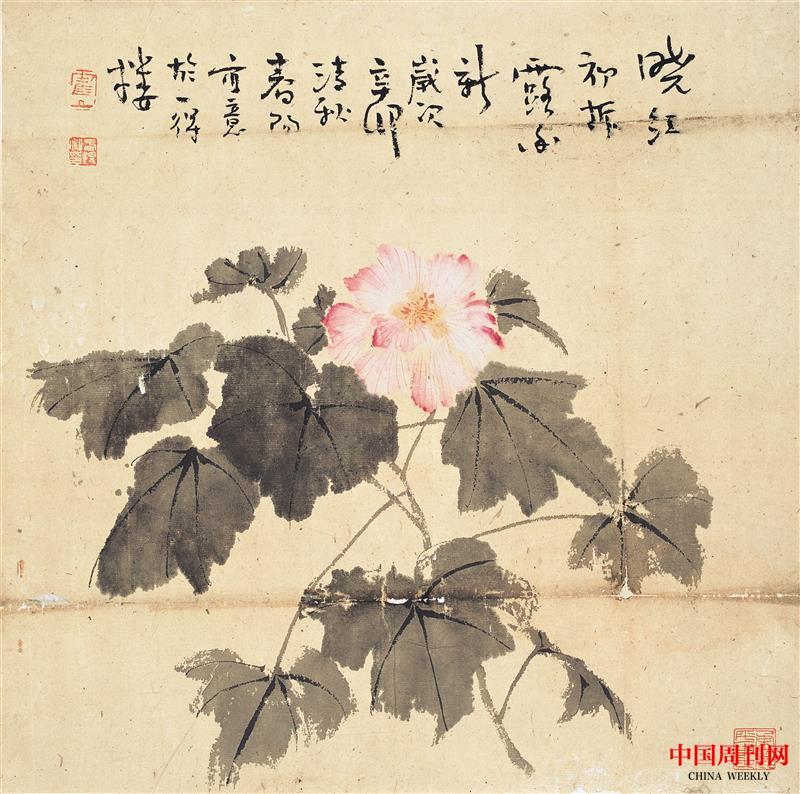 晓红
初拆
露香
新
歲次
辛卯
清秋
春阳
写意
於一得
楼
中国周刊网
CHINA WEEKLY